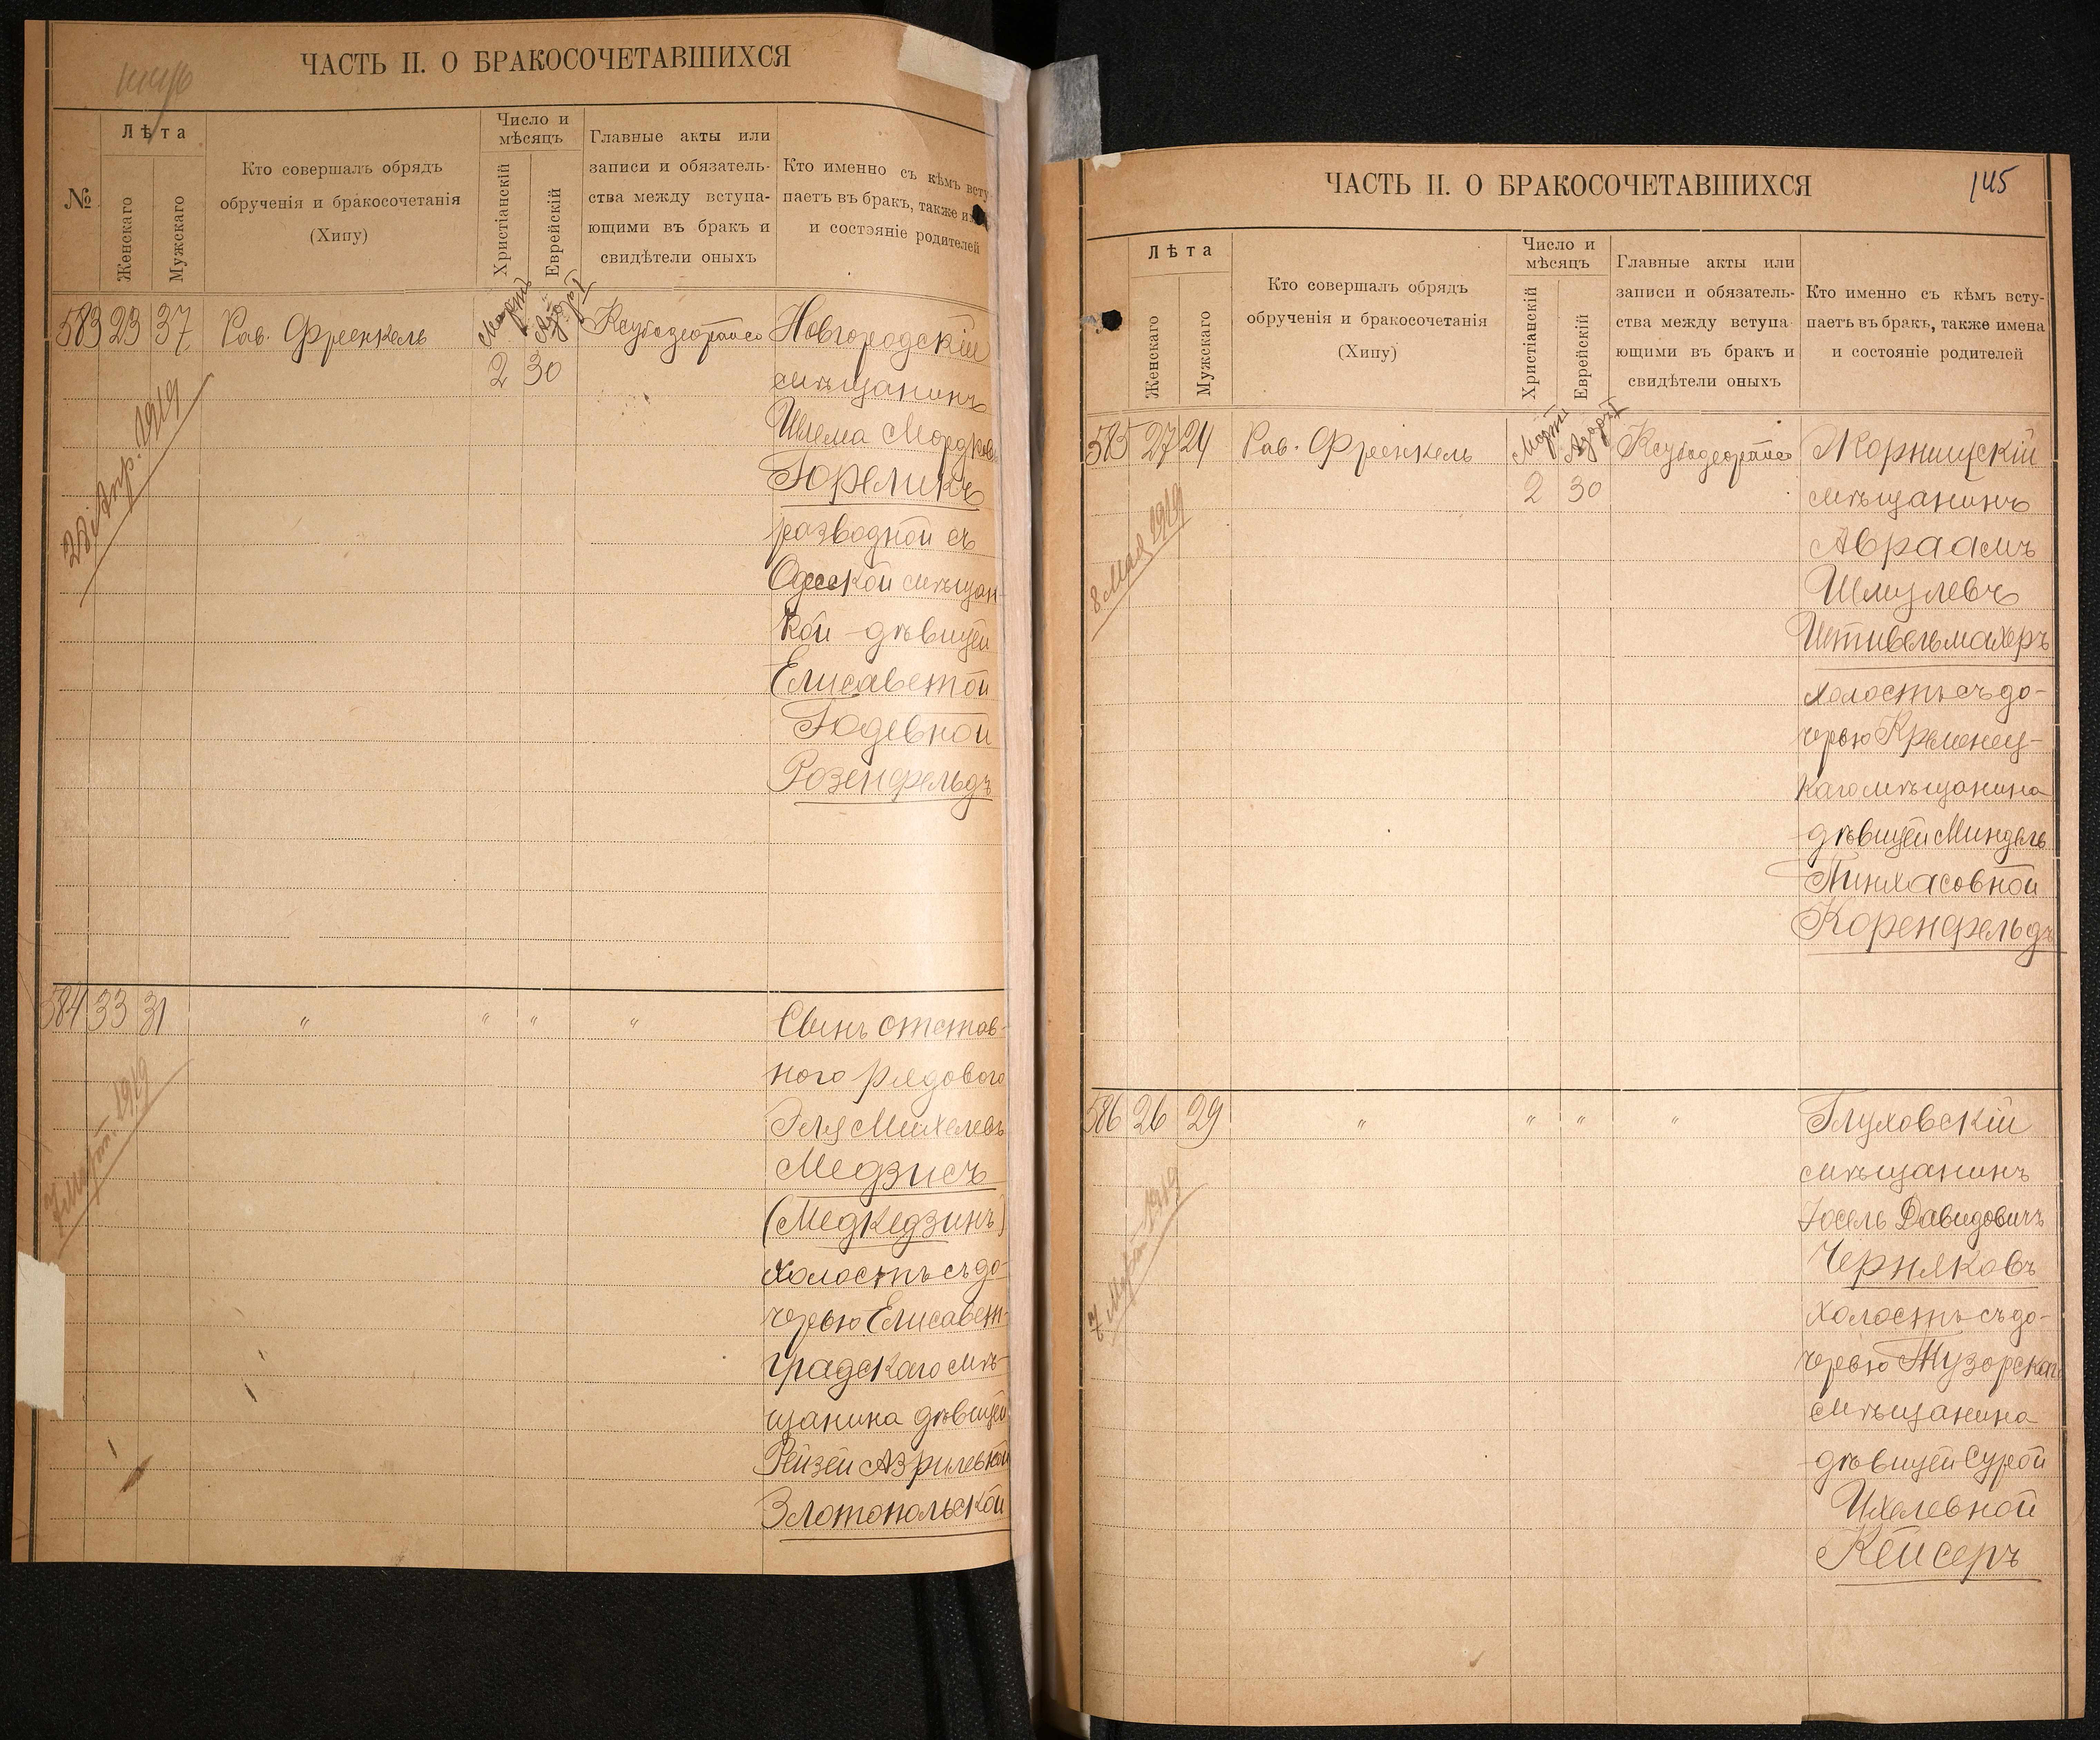 ЧАСТЬ II. О БРАКОСОЧЕТАВШИХСЯ
№
Лѣта
Женскаго
Мужскаго
Кто совершалъ обрядъ
обрученія и бракосочетанія
(Хипу)
Число и
мѣсяцъ
Христіанскій
Еврейскій
Главные акты или
записи и обязатель-
ства между вступа-
ющими въ бракъ и
свидѣтели оныхъ
Кто именно съ кѣмъ всту
паетъ въ бракъ, также
и состэяніе родителей
583 23 37 Рав. Френкель
Мартъ Адаръ I
2 30
28 Апр. 1919
Новгородскій
мѣщанинъ
Шлема Мордков
Гореликъ
разводной съ
Одесской мѣщан-
кой дѣвицей
Елисаветой
Юдевной
Розенфельдъ
584 33 31 " " " "
7 Март. 1919
Сынъ отстав-
ного рядового
Эля Михелевъ
Медзисъ
(Медкедзинъ)
холостъ съ до-
черью Елисавет-
градскаго мѣ-
щанина дѣвицей
Рейзей Азрилевной
Злотопольской
ЧАСТЬ II. О БРАКОСОЧЕТАВШИХСЯ
145
Лѣта
Женскаго
Мужскаго
Кто совершалъ обрядъ
обрученія и бракосочетанія
(Хипу)
Число и
мѣсяцъ
Христіанскій
Еврейскій
Главные акты или
записи и обязатель-
ства между вступа
ющими въ бракъ и
свидѣтели оныхъ
Кто именно съ кѣмъ всту-
паетъ въ бракъ, также имена
и состояніе родителей
585 27 24 Рав. Френкель
Мартъ Адаръ I
2 30
8 Мая 1919
Жорнищскій
мѣщанинъ
Авраамъ
Шмулевъ
Штивельмахеръ
холостъ съ до-
черью Кременец-
каго мѣщанина
дѣвицей Миндель
Пинхасовной
Коренфельдъ
586 26 29 " " " "
7 Март. 1919
Глуховскій
мѣщанинъ
Іосель Давидовичъ
Черняковъ
холостъ съ до-
черью
мѣщанина
дѣвицей Сурой
Ихелевной
Кейсеръ